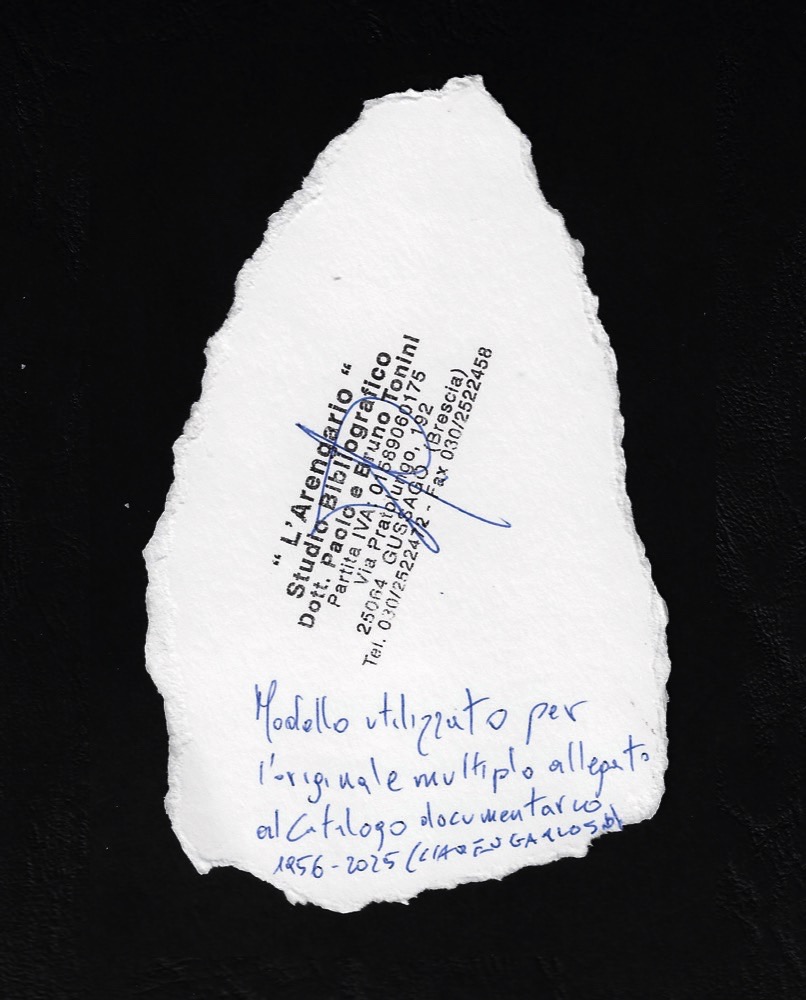 “ L'Arengario “
Studio Bibliografico
Dott. Paolo e Bruno Tonini
Partita IVA: 01589060175
Via Pratolungo, 192
25064 GUSSAGO (Brescia)
Tel. 030/2522472 - Fax 030/2522458
Modello utilizzato per
l'originale multiplo allegato
al Catalogo documentario
1956-2025 (L'ARENGARIO S.B.)